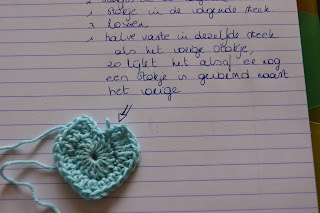 1 stokje in de volgende steek
3 lossen
1 halve vaste in dezelfde steek
als het vorige stokje,
zo lijkt het alsof er nog
een stokje is gevormd naast
het vorige